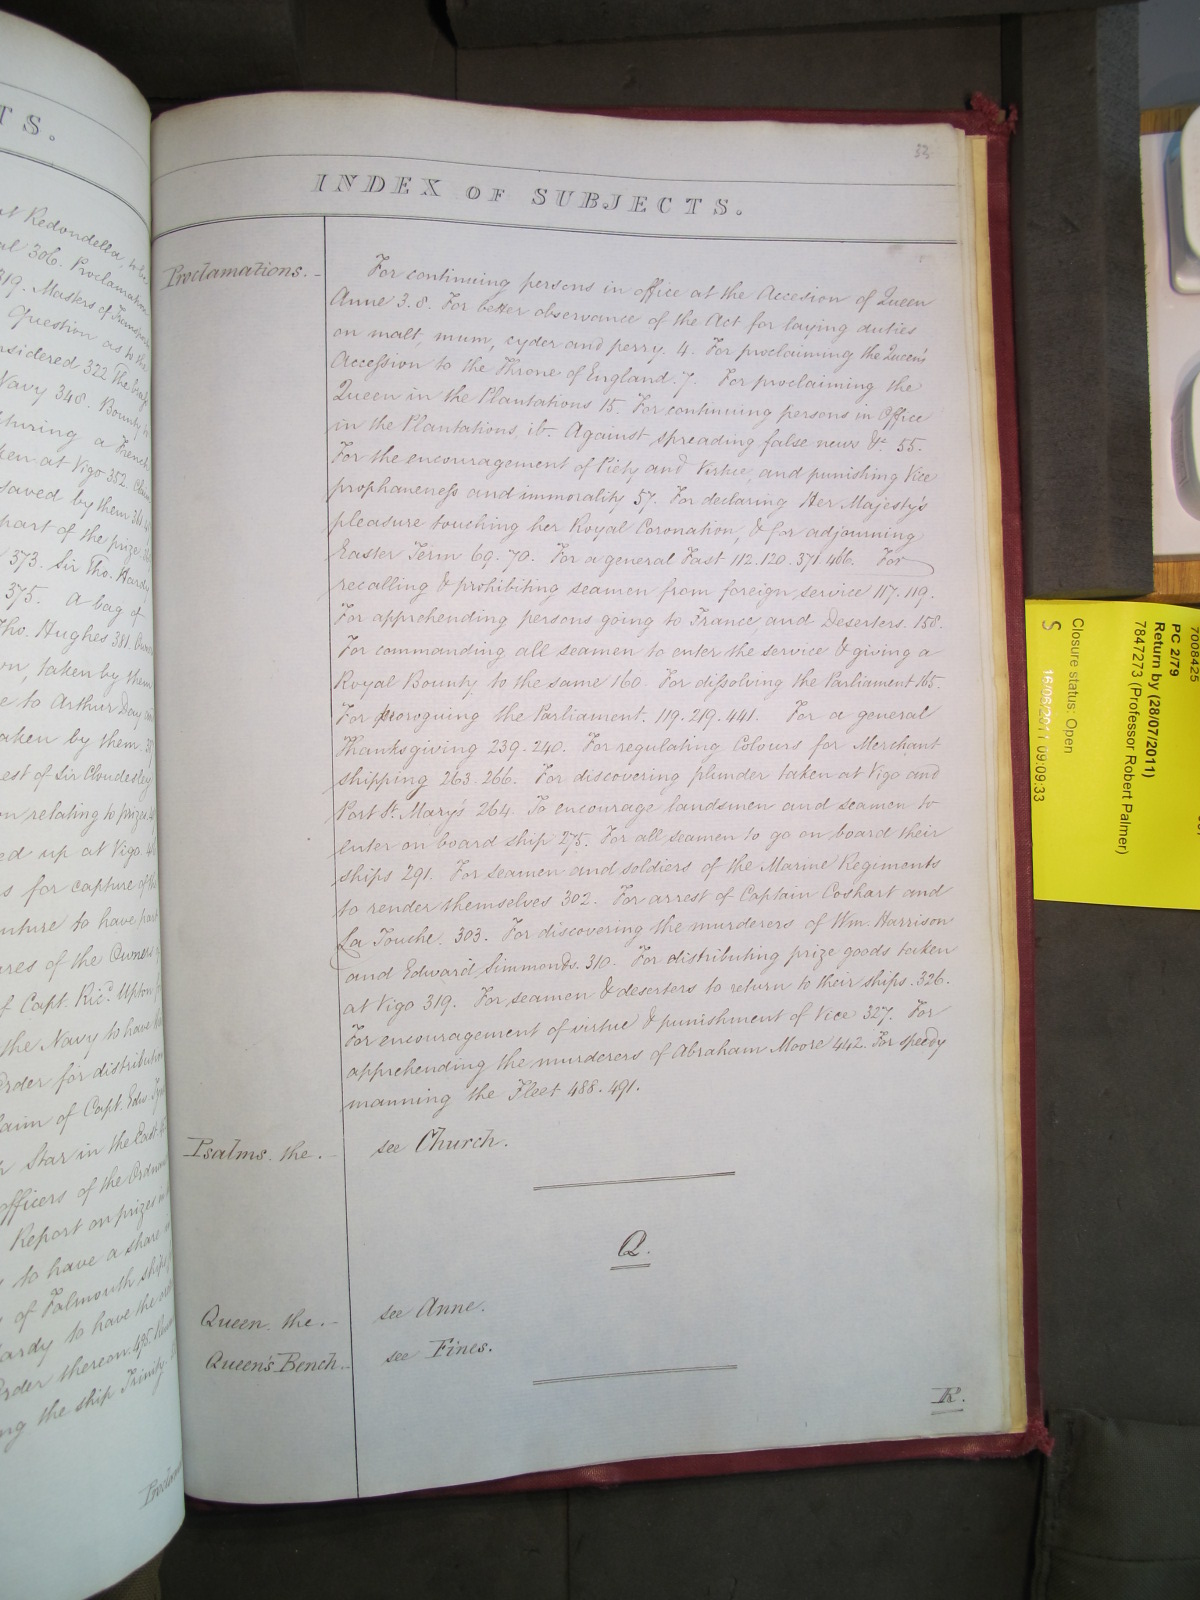 TS.
at Redondella, to be
306. Proclamation
319. Masters of Transport
Question as to the
considered 322 The
Navy 348. Bounty to
a French
taken at Vigo 352.
saved by them
part of the prize
373. Sir Tho. Hardy
375. a bag of
Tho. Hughes 381.
taken by them
to Arthur Day
taken by them
of Sir Cloudesley
relating to prizes
up at Vigo
for capture of
to have
of the Owners
of Capt. Ricd. Upton
the Navy to have
Order for distribution
Claim of Capt. Edw.
Star in the East
officers of the Ordnance
Report on prizes
to have a share
of Falmouth ships
Hardy to have the
Order thereon. 495.
the ship Trinity.
33
INDEX OF SUBJECTS.
Proclamations. -
For continuing persons in office at the Accesion of Queen
Anne 3.8. For better observance of the Act for laying duties
on malt, mum, cyder and perry. 4. For proclaiming the Queen's
Accession to the Throne of England. 7. For proclaiming the
Queen in the Plantations 15. For continuing persons in Office
in the Plantations ib. Against spreading false news &c. 55.
For the encouragement of Piety and Virtue, and punishing Vice
prophaneness and immorality 57. For declaring Her Majesty's
pleasure touching her Royal Coronation, & for adjourning
Easter Term 69. 70. For a general Fast 112. 120. 371. 466. For
recalling & prohibiting seamen from foreign service 117. 119.
For apprehending persons going to France, and Deserters. 158.
For commanding all seamen to enter the service & giving a
Royal Bounty to the same 160. For dissolving the Parliament 165.
For proroguing the Parliament. 119. 219. 441. For a general
Thanksgiving 239. 240. For regulating Colours for Merchant
shipping 263. 266. For discovering plunder taken at Vigo and
Port St. Mary's 264. To encourage landsmen and seamen to
enter on board ship 275. For all seamen to go on board their
ships 291. For seamen and soldiers of the Marine Regiments
to render themselves 302. For arrest of Captain Coshart and
La Touche. 303. For discovering the murderers of Wm. Harrison
and Edward Simmonds. 310. For distributing prize goods taken
at Vigo 319. For seamen & deserters to return to their ships. 326.
For encouragement of virtue & punishment of Vice 327. For
apprehending the murderers of Abraham Moore 442. For speedy
manning the Fleet 488. 491.
Psalms. the. - see Church.
Q.
Queen. the. - see Anne.
Queen's Bench. - see Fines.
R.
7008425
PC 2/79
Return by (28/07/2011)
7847273 (Professor Robert Palmer)
Closure status: Open
S
16/06/2011 09:09:33